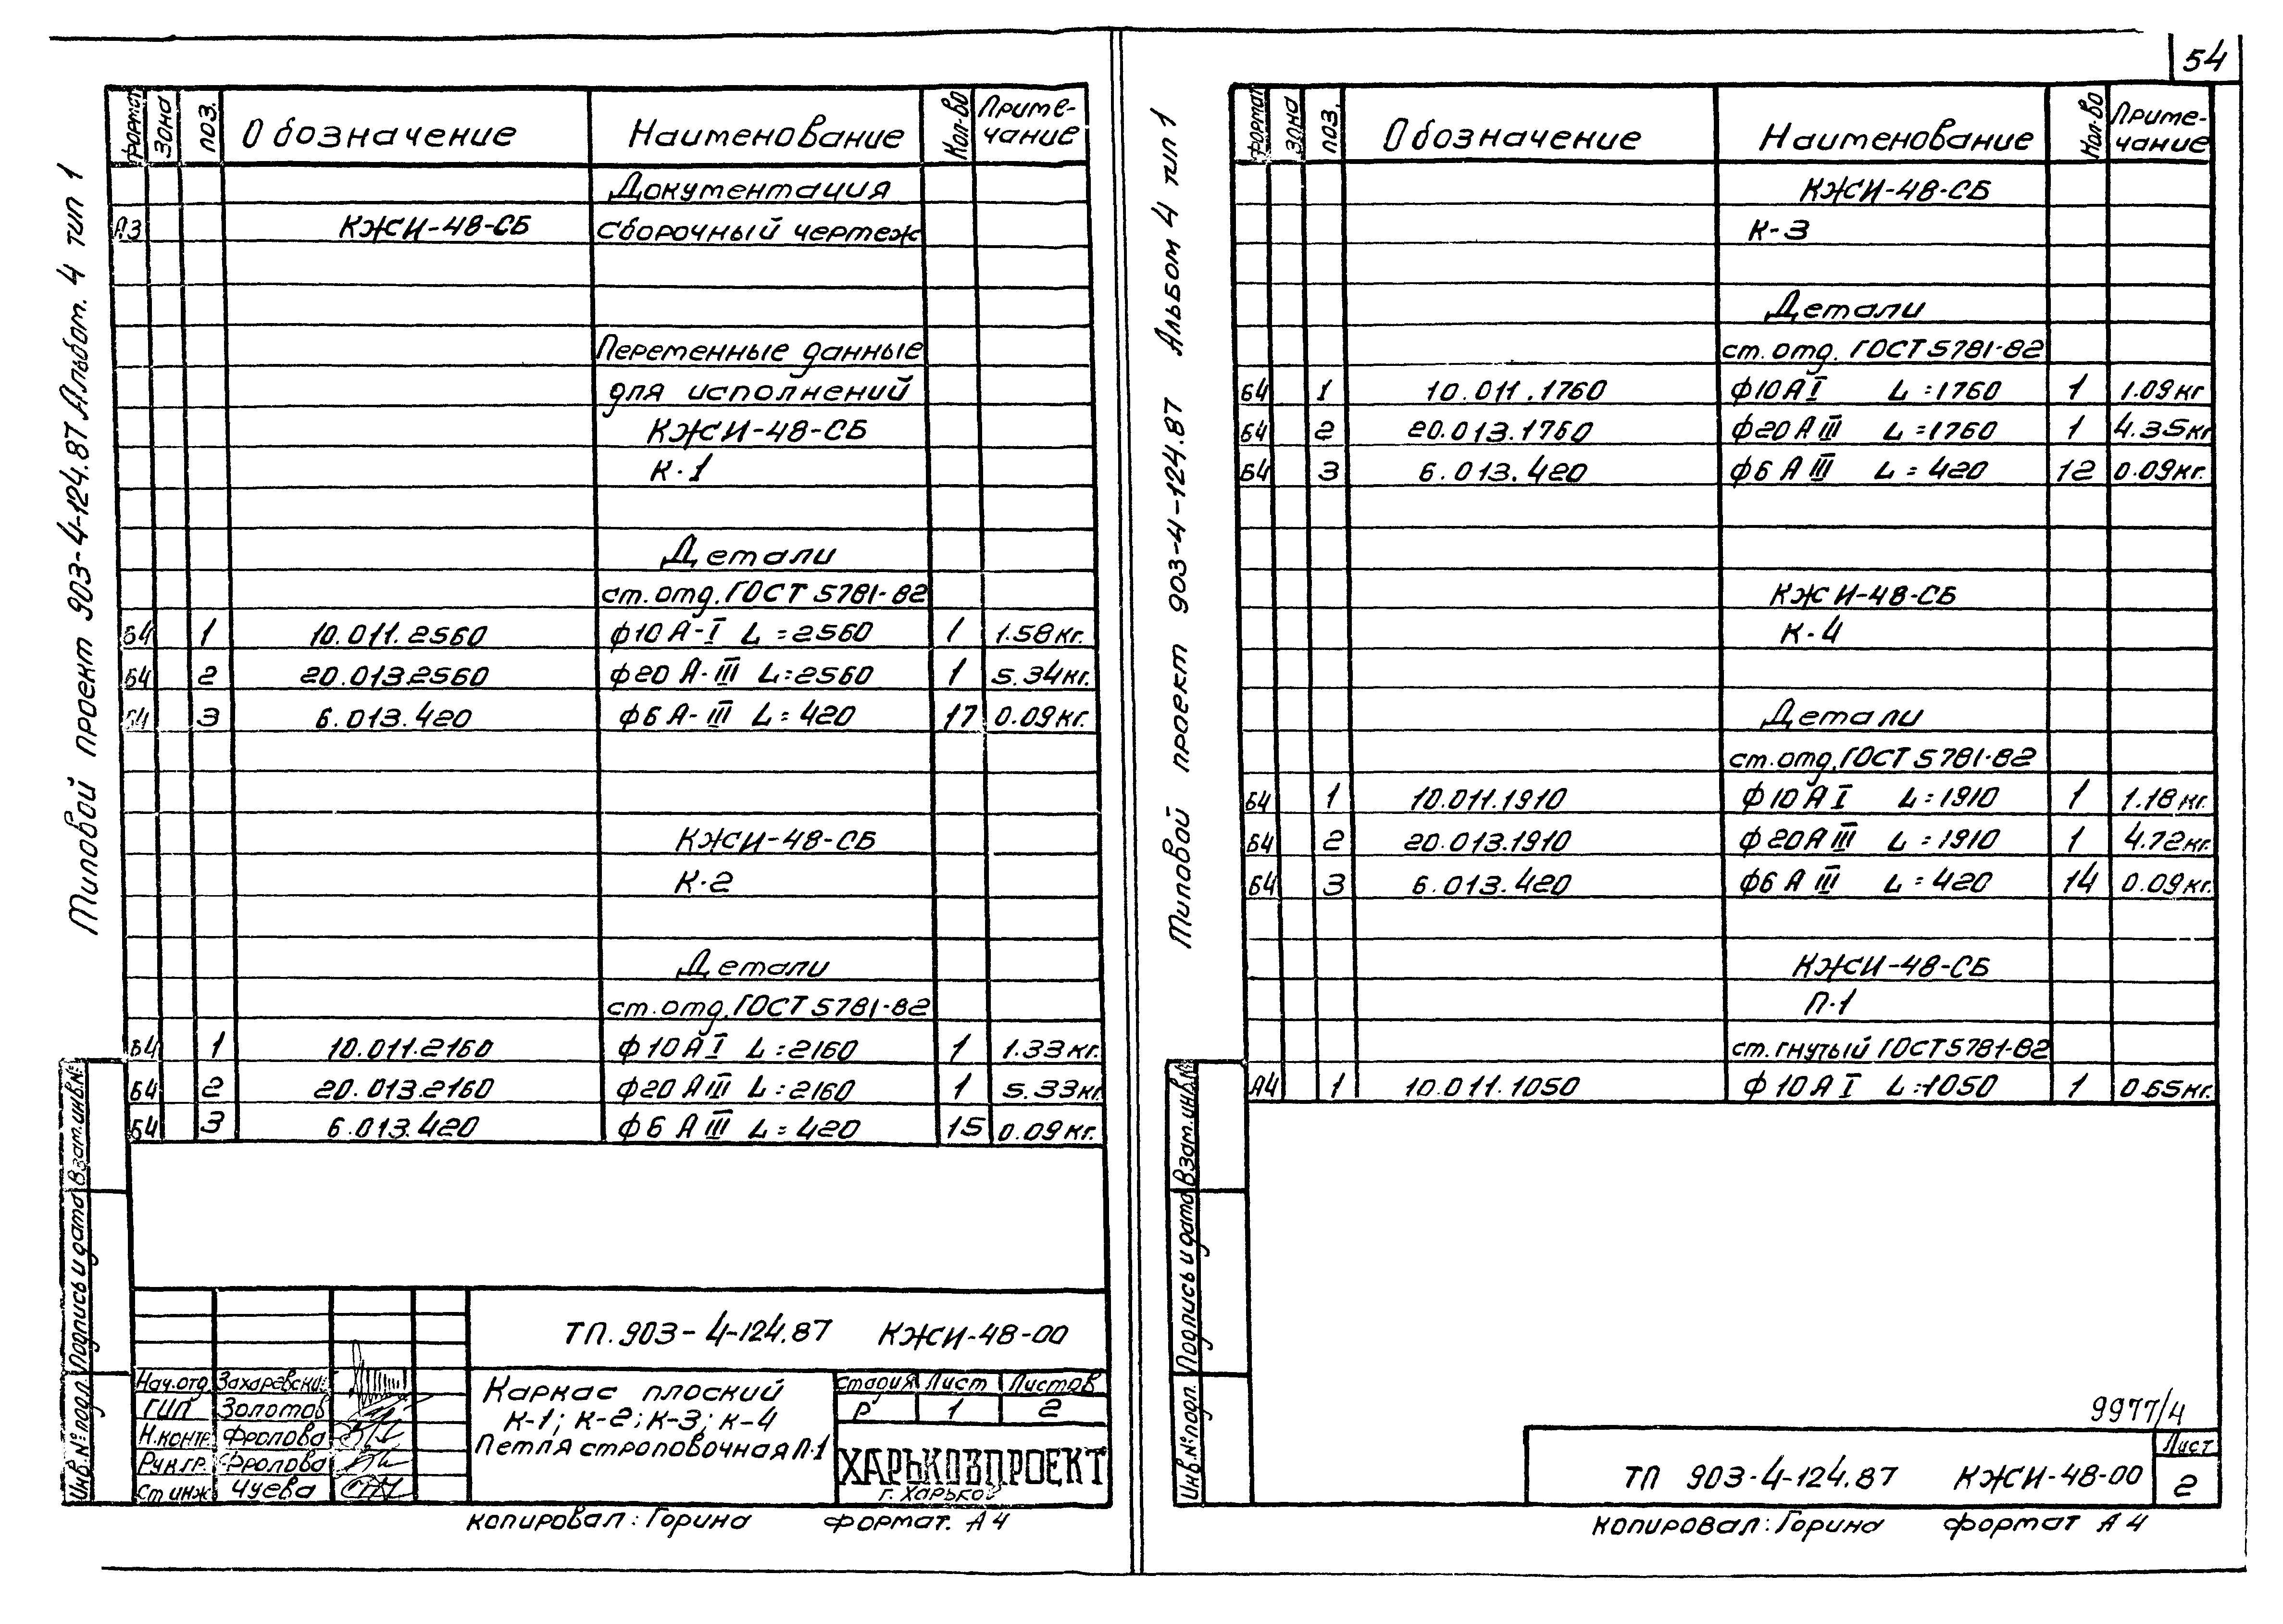 54
Типовой проект 903-4-124.87 Альбом. 4 тип 1
Формат Зона Поз. Обозначение Наименование Кол-во Приме-чание
Документация
А3 КЖСИ-48-СБ Сборочный чертеж
Переменные данные
для исполнений
КЖСИ-48-СБ
К-1
Детали
ст. отд. ГОСТ 5781-82
Б4 1 10.011.2560 ф10 А-I L=2560 1 1.58 кг.
Б4 2 20.013.2560 ф20 А-III L=2560 1 5.34 кг.
Б4 3 6.013.420 ф6 А-III L=420 17 0.09 кг.
КЖСИ-48-СБ
К-2
Детали
ст. отд. ГОСТ 5781-82
Б4 1 10.011.2160 ф10 А I L=2160 1 1.33 кг.
Б4 2 20.013.2160 ф20 А III L=2160 1 5.33 кг.
Б4 3 6.013.420 ф6 А III L=420 15 0.09 кг.
Инв.№подл. Подпись и дата Взам.инв.№
ТП. 903-4-124.87 КЖСИ-48-00
Нач.отд. Захаревский
ГИП Золотов
Н.контр. Фролова
Рук.гр. Фролова
Ст инж Чуева
Каркас плоский
К-1; К-2; К-3; К-4
Петля строповочная П-1
Стадия Лист Листов
Р 1 2
ХАРЬКОВПРОЕКТ
г. Харьков
копировал: Горина формат. А4
Типовой проект 903-4-124.87 Альбом 4 тип 1
Формат Зона Поз. Обозначение Наименование Кол-во Приме-чание
КЖСИ-48-СБ
К-3
Детали
ст. отд. ГОСТ 5781-82
Б4 1 10.011.1760 ф10 А I L=1760 1 1.09 кг
Б4 2 20.013.1760 ф20 А III L=1760 1 4.35 кг
Б4 3 6.013.420 ф6 А III L=420 12 0.09 кг.
КЖСИ-48-СБ
К-4
Детали
ст. отд. ГОСТ 5781-82
Б4 1 10.011.1910 ф10 А I L=1910 1 1.18 кг.
Б4 2 20.013.1910 ф20 А III L=1910 1 4.72 кг.
Б4 3 6.013.420 ф6 А III L=420 14 0.09 кг.
КЖСИ-48-СБ
П-1
ст. гнутый ГОСТ 5781-82
А4 1 10.011.1050 ф10 А I L=1050 1 0.65 кг.
Инв.№подл. Подпись и дата Взам.инв.№
9977/4
ТП 903-4-124.87 КЖСИ-48-00
Лист
2
копировал: Горина формат А4